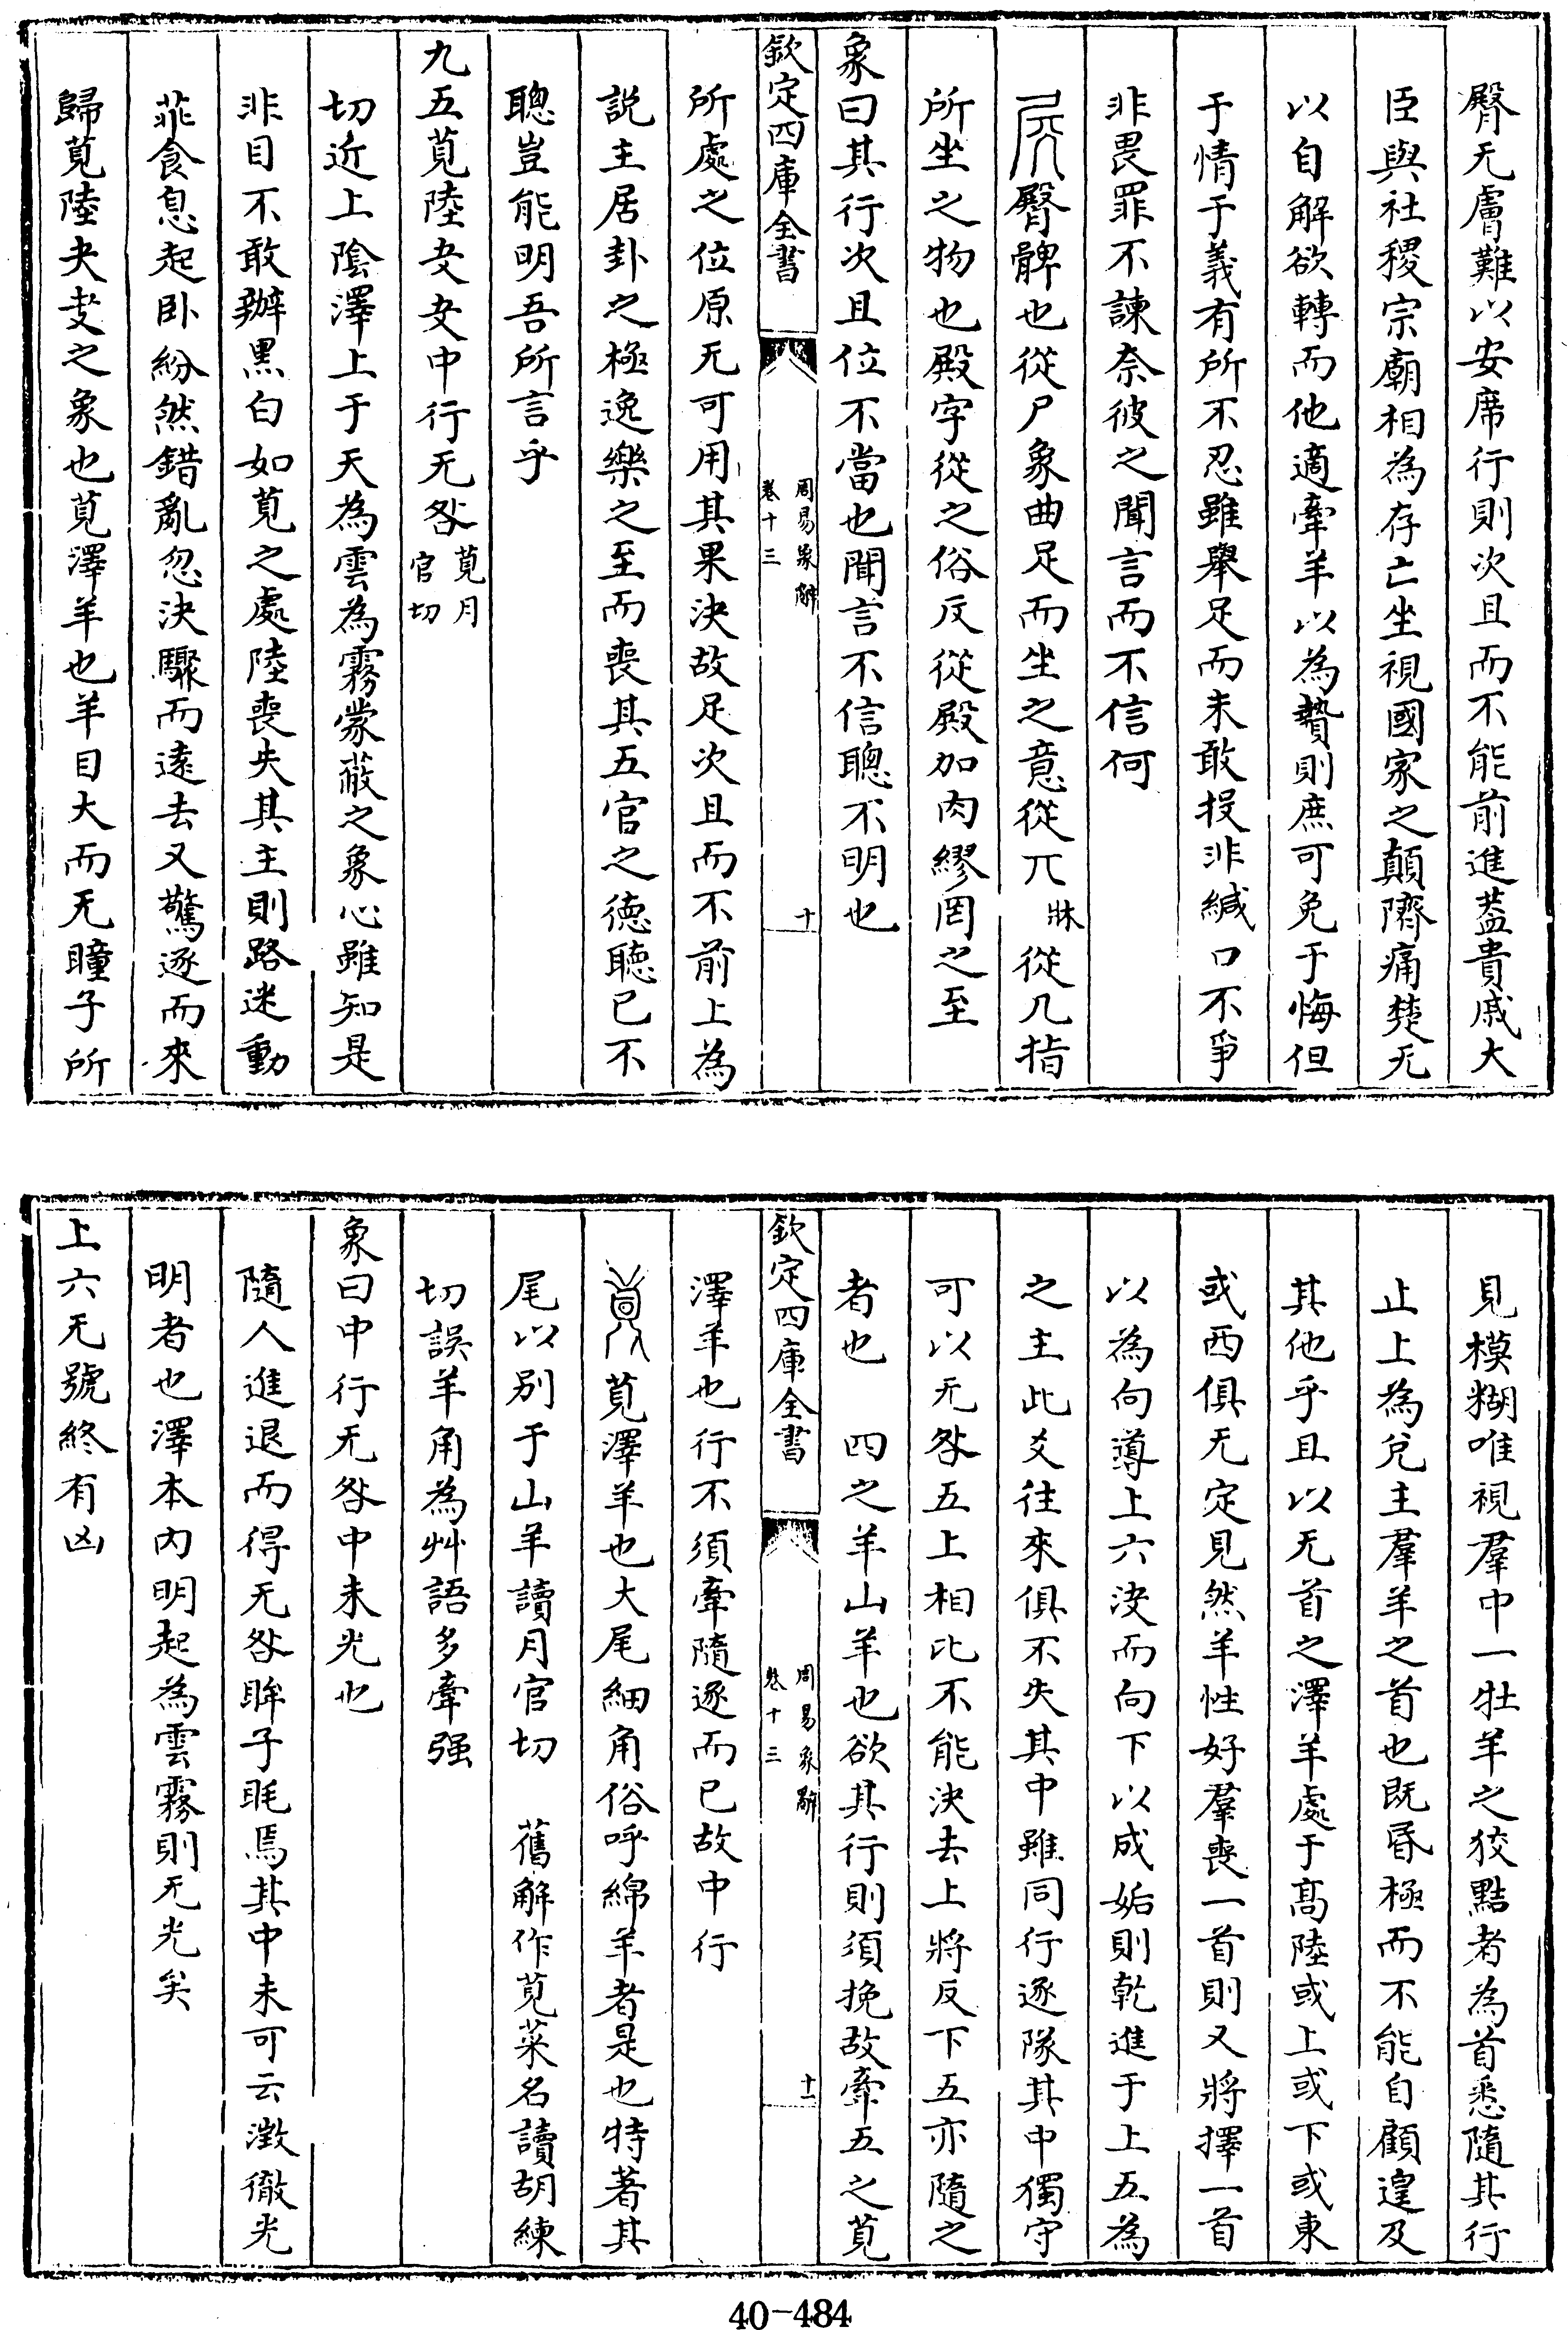 臀无膚難以安席行則次且而不能前進蓋貴戚大
臣與社稷宗廟相為存亡坐視國家之顛隮痛楚无
以自解欲轉而他適牽羊以為贄則庶可免于悔但
于情于義有所不忍雖舉足而未敢投非緘口不爭
非畏罪不諫奈彼之聞言而不信何
臀髀也從尸象曲足而坐之意從丌牀從几指
所坐之物也殿字從之俗反從殿加肉繆罔之至
象曰其行次且位不當也聞言不信聰不明也
欽定四庫全書
周易象辭
卷十三
十
所處之位原无可用其果決故足次且而不前上為
説主居卦之極逸樂之至而喪其五官之德聽已不
聰豈能明吾所言乎
九五莧陸夬夬中行无咎莧月官切
切近上陰澤上于天為雲為霧蒙蔽之象心雖知是
非目不敢辦黑白如莧之處陸喪失其主則路迷動
菲食息起卧紛然錯亂忽決驟而遠去又驚逐而來
歸莧陸夬夬之象也莧澤羊也羊目大而无瞳子所
見模糊唯視羣中一牡羊之狡黠者為首悉隨其行
止上為兌主羣羊之首也既昏極而不能自顧遑及
其他乎且以无首之澤羊處于高陸或上或下或東
或西俱无定見然羊性好羣喪一首則又將擇一首
以為向導上六決而向下以成姤則乾進于上五為
之主此爻往來俱不失其中雖同行逐隊其中獨守
可以无咎五上相比不能決去上將反下五亦隨之
者也　四之羊山羊也欲其行則須挽故牽五之莧
欽定四庫全書
周易象辭
卷十三
十一
澤羊也行不須牽隨逐而已故中行
莧澤羊也大尾細角俗呼綿羊者是也特著其
尾以別于山羊讀月官切　舊解作莧菜名讀胡練
切誤羊角為艸語多牽强
象曰中行无咎中未光也
隨人進退而得无咎眸子眊焉其中未可云澂徹光
明者也澤本内明起為雲霧則无光矣
上六无號終有凶
40-484